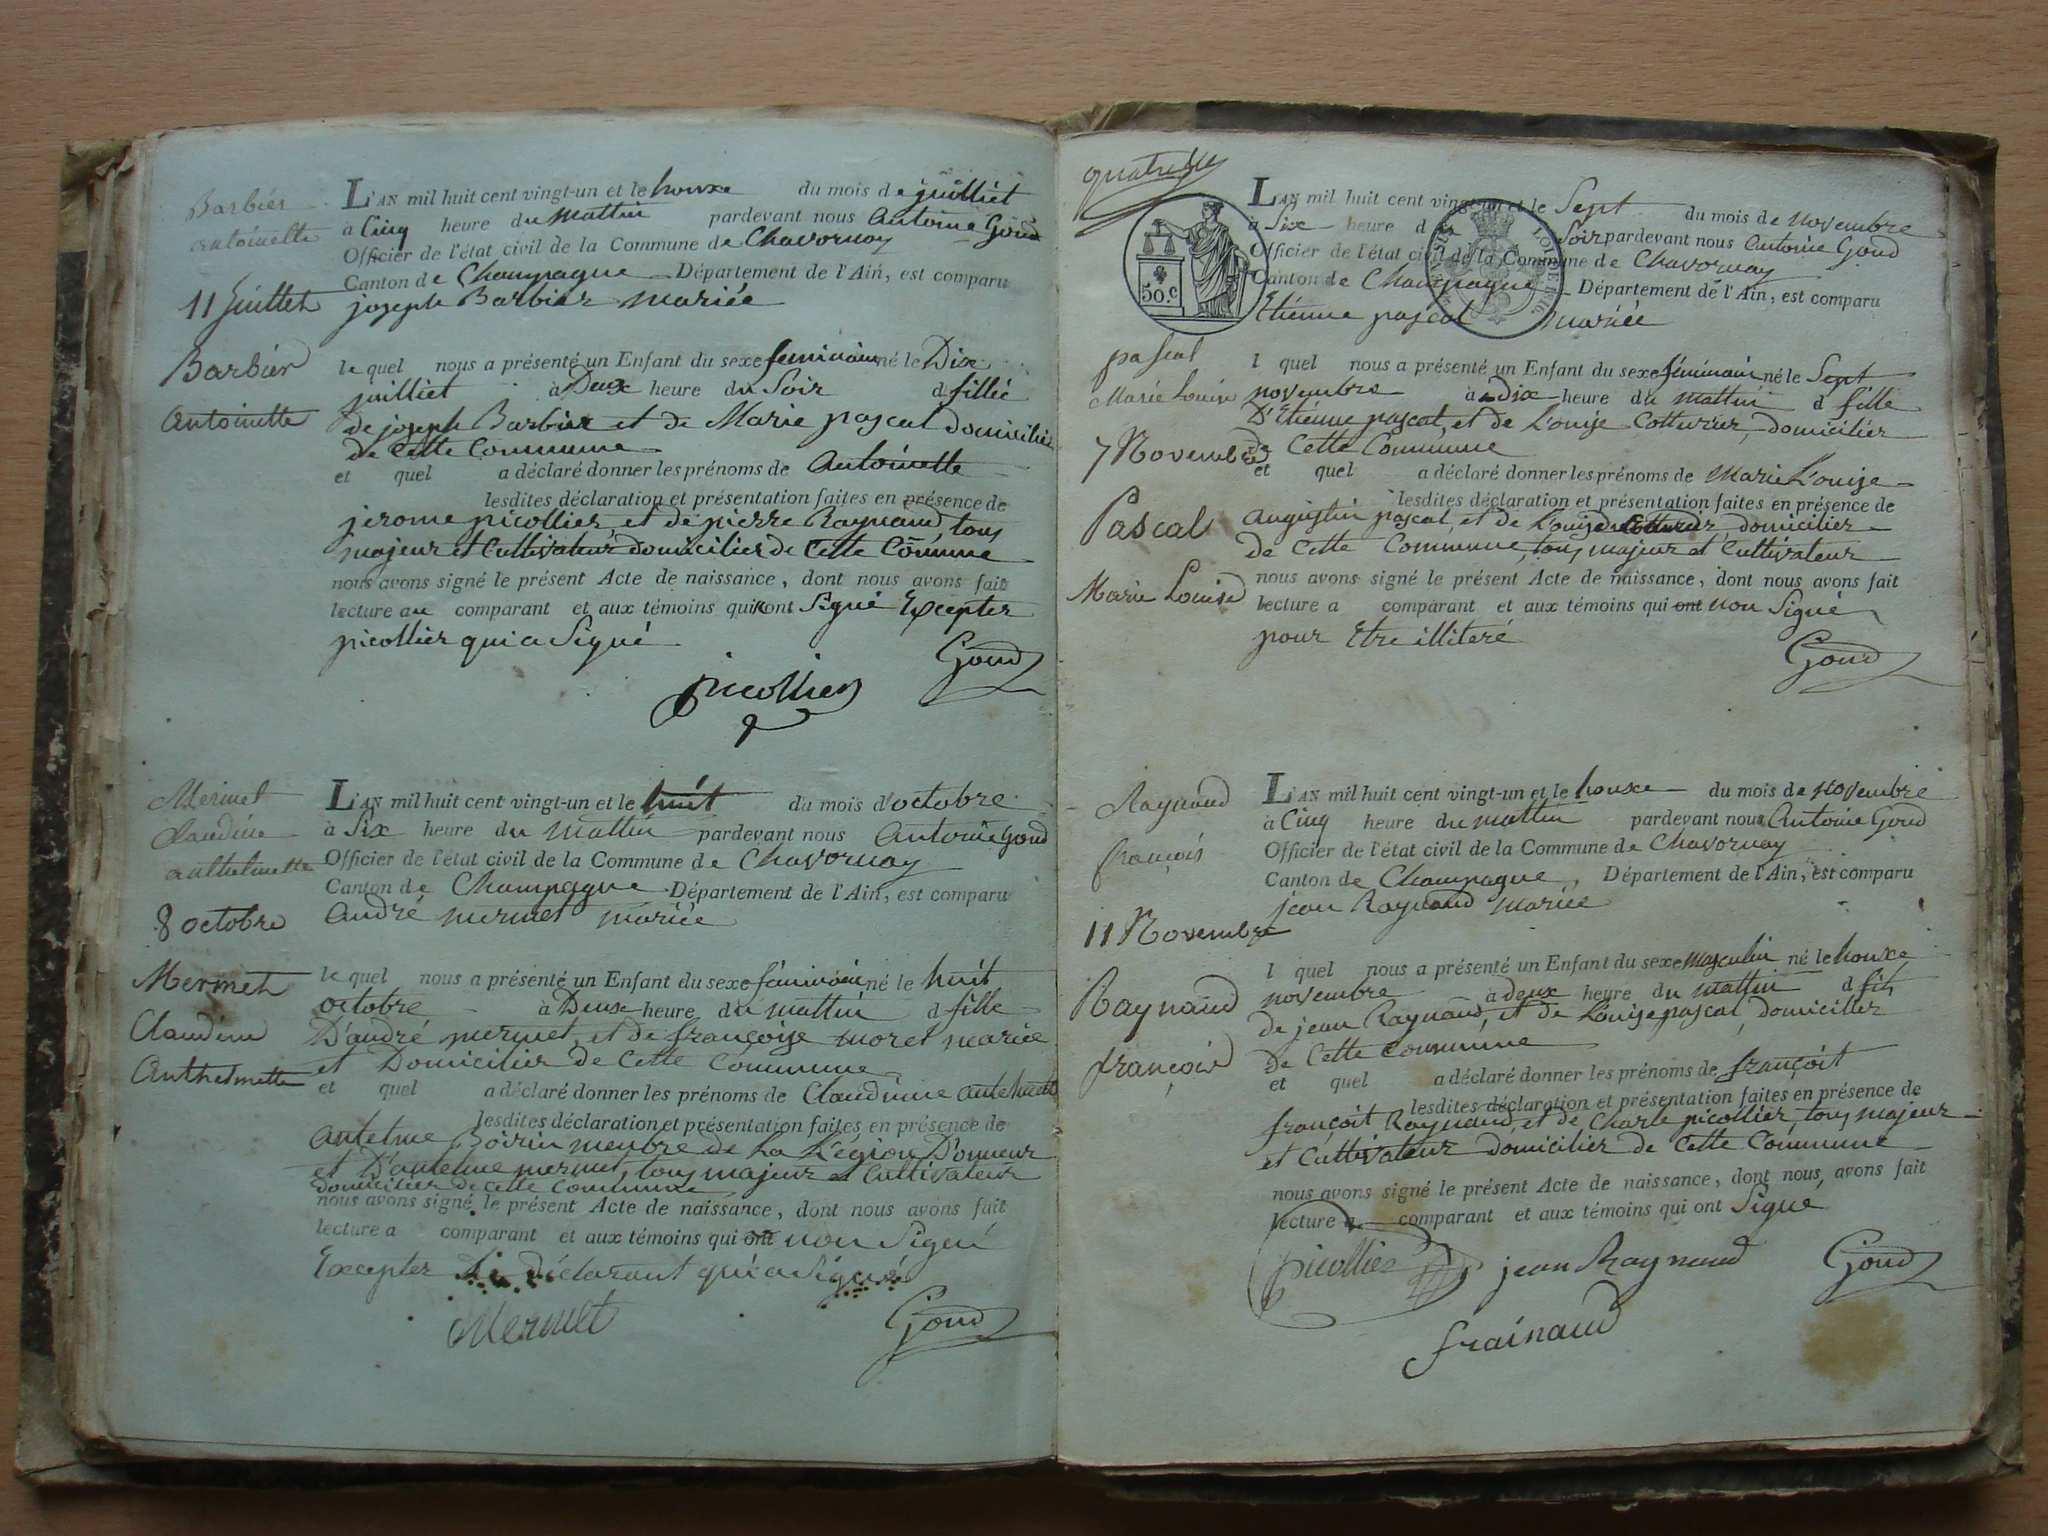 Barbier
antoinette
11 Juillet
Barbier
Antoinette
L'AN mil huit cent vingt-un et le honze du mois de juilliet
à Cinq heure du mattin pardevant nous Antoine Goud
Officier de l'état civil de la Commune de Chavornay
Canton de Champagne Département de l'Ain, est comparu
joseph Barbier mariée
le quel nous a présenté un Enfant du sexe feminain né le Dix
juilliet à Deux heure du Soir d fillie
de joseph Barbier et de Marie pascal domicilier
de Cette Commune
et quel a déclaré donner les prénoms de Antoinette
lesdites déclaration et présentation faites en présence de
jerome picollier et de pierre Raynaud, tous
majeur et Cultivateur domicilier de Cette Commune
nous avons signé le présent Acte de naissance, dont nous avons fait
lecture au comparant et aux témoins qui ont Signé Excepter
picollier qui a Signé
Goud
picollier
Mermet
claudine
anthelmette
8 octobre
Mermet
Claudine
Anthelmette
L'AN mil huit cent vingt-un et le huit du mois d'octobre
à Six heure du mattin pardevant nous Antoine Goud
Officier de l'état civil de la Commune de Chavornay
Canton de Champagne Département de l'Ain, est comparu
André mermet mariée
le quel nous a présenté un Enfant du sexe féminain né le huit
octobre à Deux heure du mattin d fille
D'andré mermet, et de françoise moret mariée
et Domicilier de Cette Commune
et quel a déclaré donner les prénoms de Claudinne antelmette
lesdites déclaration et présentation faites en présence de
Antelme Boirin menbre de La Légion D'onneur
et D'antelme mermet, tous majeur et Cultivateur
domicilier de cette Commune
nous avons signé le présent Acte de naissance, dont nous avons fait
lecture a comparant et aux témoins qui ont non Signé
Excepter Le déclarant qui a Signé
Mermet
Goud
50.c
pascal
Marie Louise
7 Novembre
Pascal
Marie Louise
L'AN mil huit cent vingt-un et le Sept du mois de novembre
à Six heure d Soir pardevant nous Antoine Goud
Officier de l'état civil de la Commune de Chavornay
Canton de Champagne Département de l'Ain, est comparu
Etienne pascal mariée
l quel nous a présenté un Enfant du sexe féminain né le Sept
novembre à Dix heure du mattin d fille
D'Etienne pascal, et de Louise Cotturier, domicilier
de Cette Commune
et quel a déclaré donner les prénoms de Marie Louise
lesdites déclaration et présentation faites en présence de
Augustin pascal, et de Louis Cotturier, domicilier
de Cette Commune, tous majeur et Cultivateur
nous avons signé le présent Acte de naissance, dont nous avons fait
lecture a comparant et aux témoins qui ont non Signé
pour Etre illiteré
Goud
Raynaud
françois
11 Novembre
Raynaud
françois
L'AN mil huit cent vingt-un et le honze du mois de novembre
à Cinq heure du mattin pardevant nous Antoine Goud
Officier de l'état civil de la Commune de Chavornay
Canton de Champagne, Département de l'Ain, est comparu
jean Raynaud mariée
l quel nous a présenté un Enfant du sexe masculin né le honze
novembre à deux heure du mattin d fils
de jean Raynaud, et de Louise pascal, domicilier
de Cette Commune
et quel a déclaré donner les prénoms de françoit
lesdites déclaration et présentation faites en présence de
françoit Raynaud, et de Charle picollier, tous majeur
et Cultivateur domicilier de Cette Commune
nous avons signé le présent Acte de naissance, dont nous avons fait
lecture a comparant et aux témoins qui ont Signé
picollier jean Raynaud Goud
frainaud